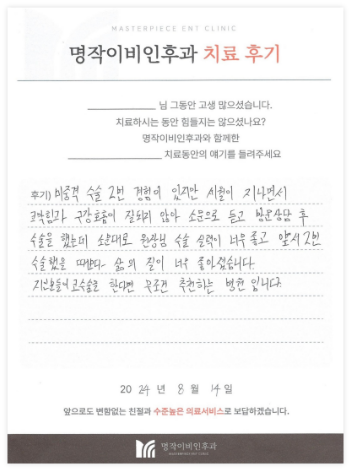 MASTERPIECE ENT CLINIC
명작이비인후과 치료 후기
님 그동안 고생 많으셨습니다.
치료하시는 동안 힘들지는 않으셨나요?
명작이비인후과와 함께한
치료동안의 얘기를 들려주세요
후기) 비중격 수술 2번 경험이 있지만 시월이 지나면서
코막힘과 구강호흡이 잘되지 않아 소문으로 듣고 방문상담 후
수술을 했는데 소문대로 원장님 수술 실력이 너무 좋고 앞서 2번
수술했을 때보다 삶의 질이 너무 좋아졌습니다.
지인분들이 코수술을 한다면 무조건 추천하는 병원 입니다.
2024년 8월 14일
앞으로도 변함없는 친절과 수준높은 의료서비스로 보답하겠습니다.
명작이비인후과
MASTERPIECE ENT CLINIC